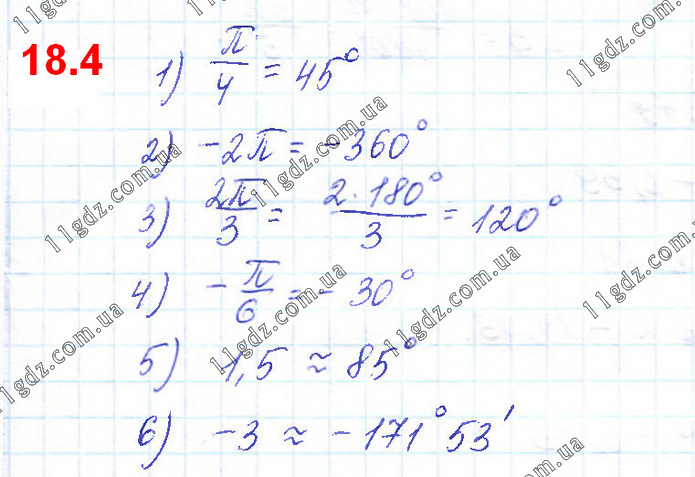 18.4
1) π/4 = 45°
2) -2π = -360°
3) 2π/3 = 2·180°/3 = 120°
4) -π/6 = -30°
5) 1,5 ≈ 85°
6) -3 ≈ -171°53'
11gdz.com.ua
11gdz.com.ua
11gdz.com.ua
11gdz.com.ua
11gdz.com.ua
11gdz.com.ua
11gdz.com.ua
11gdz.com.ua
11gdz.com.ua
11gdz.com.ua